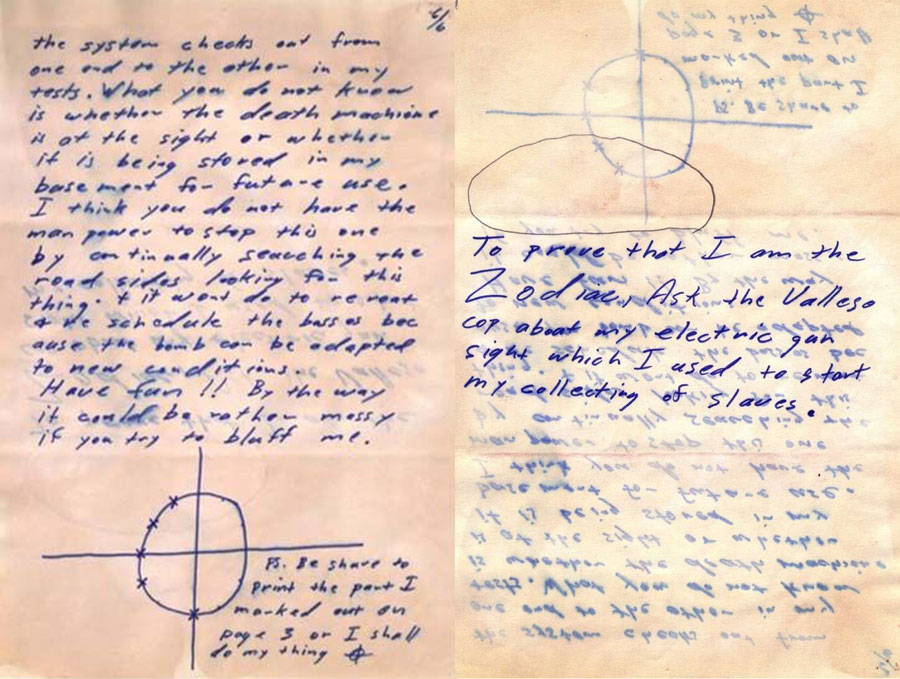 6/6
the system checks out from
one end to the other in my
tests. What you do not know
is whether the death machiene
is at the sight or whether
it is being stored in my
basement for future use.
I think you do not have the
man power to stop this one
by continually searching the
road sides looking for this
thing. & it wont do to re roat
& re schedule the busses bec
ause the bomb can be adapted
to new conditions.
Have fun !! By the way
it could be rather messy
if you try to bluff me.
PS. Be shure to
print the part I
marked out on
page 3 or I shall
do my thing
To prove that I am the
Zodiac, Ask the Vallejo
cop about my electric gun
sight which I used to start
my collecting of slaves.